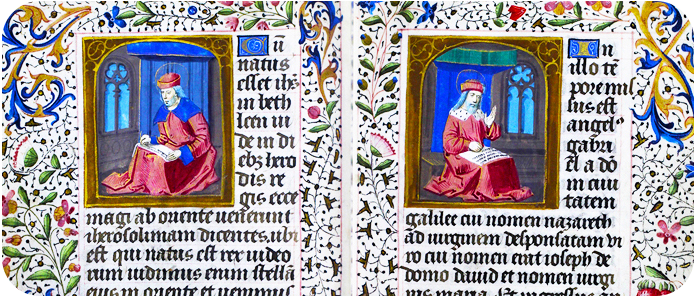 Cū
natus
esset ihs
in beth
leen iu
de in di
ebz hero
dis re
gis ecce
magi ab oriente venerunt
iherosolimam dicentes. ubi
est qui natus est rex iudeo
rum vidimus enim stellā
eius in oriente et venimus
In
illo tē
pore mis
sus est
angel⁹
gabri
el a deo
in civi
tatem
galilee cui nomen nazareth
ad virginem desponsatam vi
ro cui nomen erat ioseph de
domo david et nomen virgi
nis maria. Et ingressus